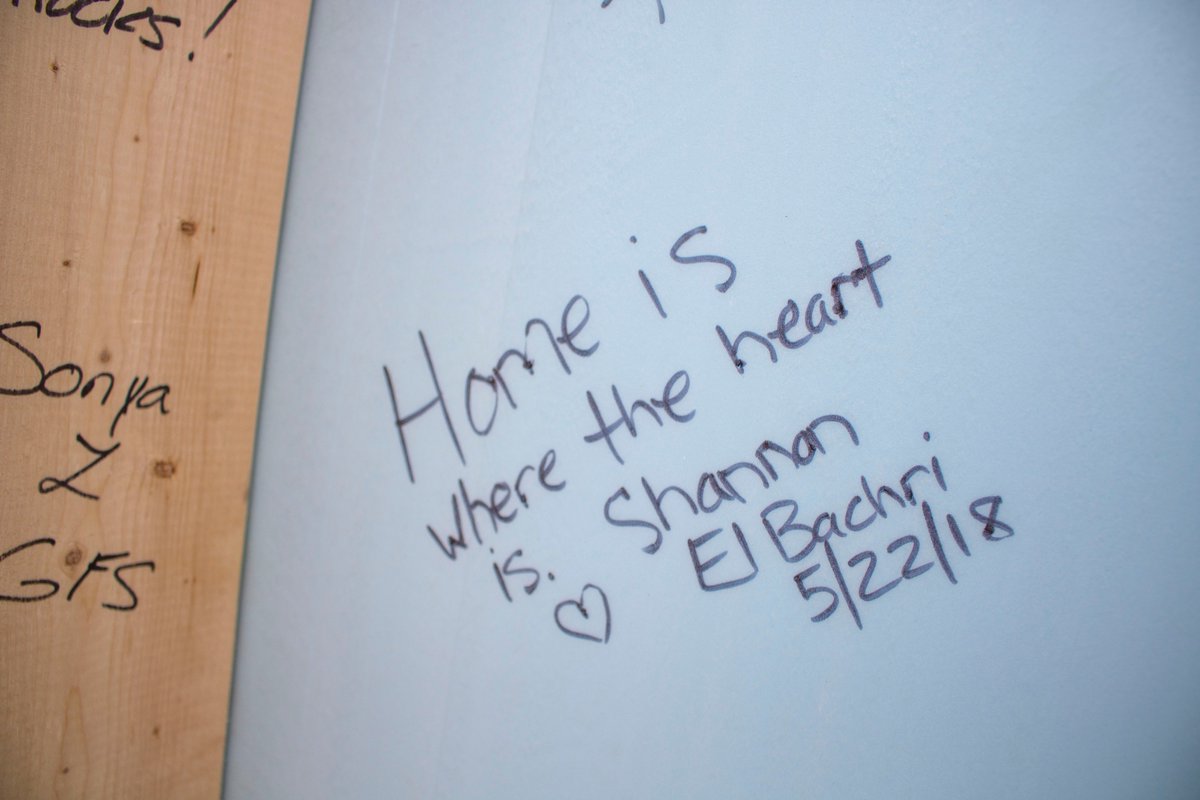 Sonya
Z
GFS
Home is
where the heart
is.
Shannon
El Bachri
5/22/18